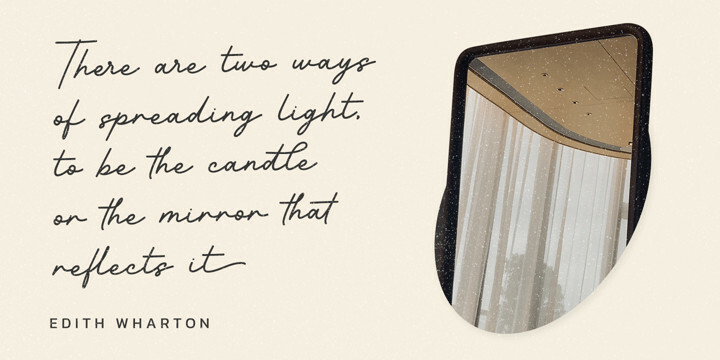 There are two ways
of spreading light.
to be the candle
or the mirror that
reflects it
EDITH WHARTON